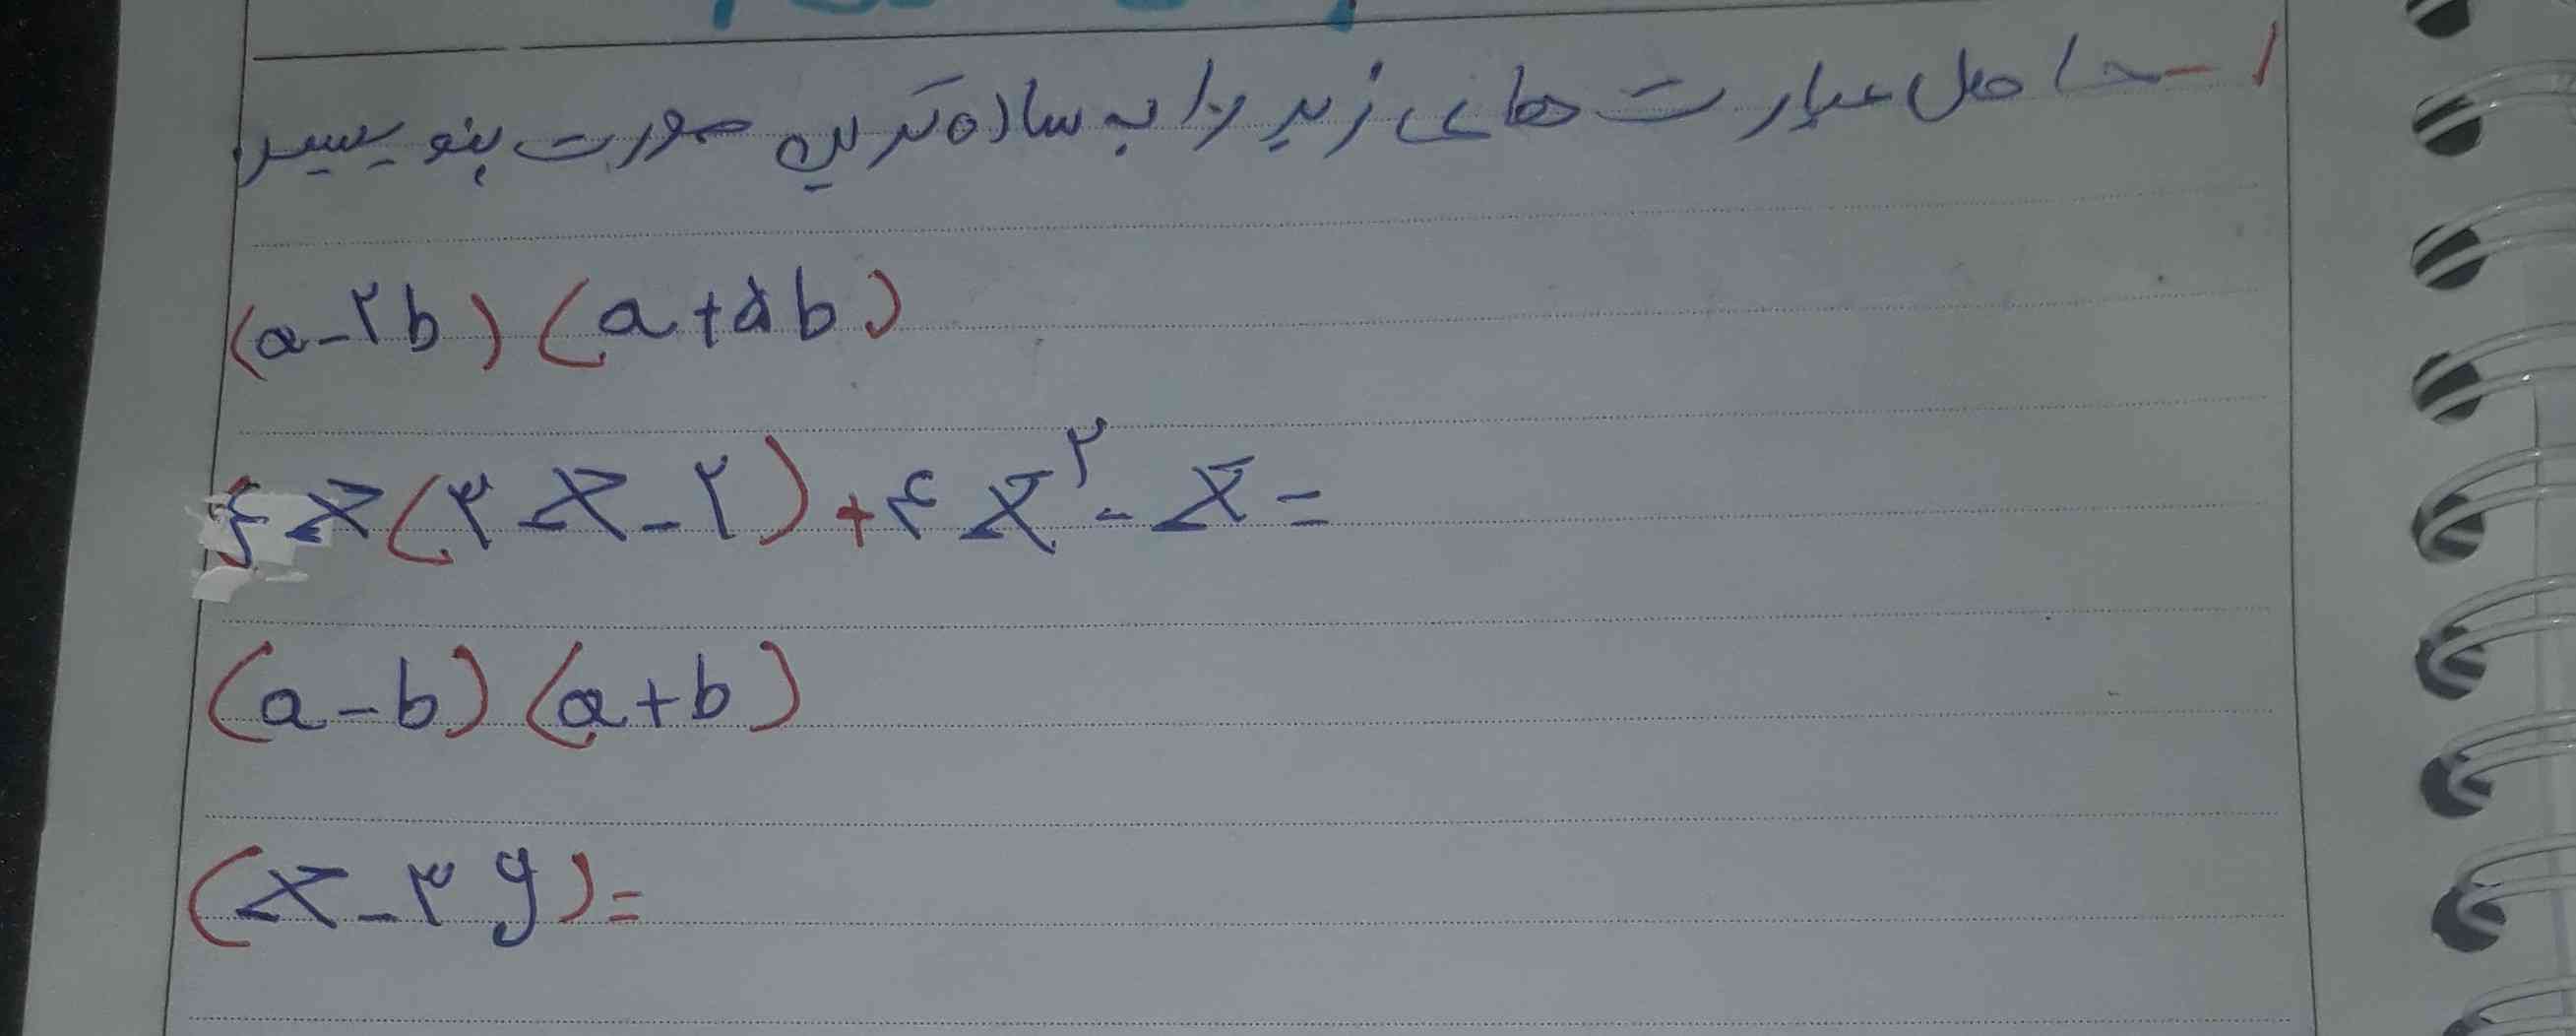 ۱- حاصل عبارت های زیر را به ساده ترین صورت بنویسید.
(a-۲b)(a+۵b)
x(۳x-۲)+۴x²-x=
(a-b)(a+b)
(x-۳y)=